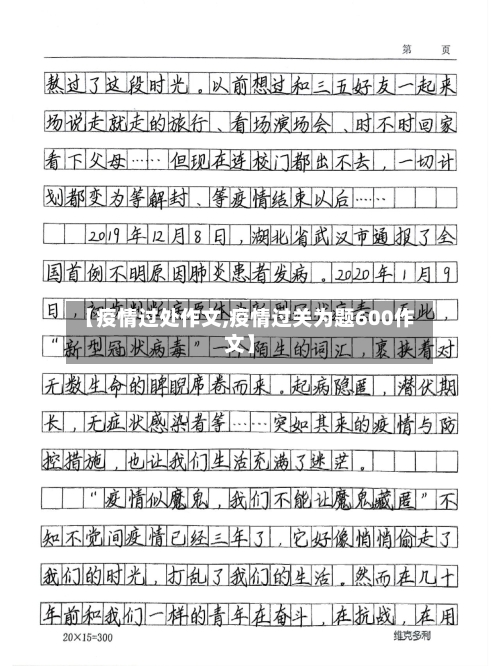 第 页
熬过了这段时光。以前想过和三五好友一起来
场说走就走的旅行、看场演场会、时不时回家
看下父母……但现在连校门都出不去,一切计
划都变为等解封、等疫情结束以后……
2019年12月8日,湖北省武汉市通报了全
国首例不明原因肺炎患者发病。2020年1月9
日,
【疫情过处作文,疫情过关为题600作
文】
“新型冠状病毒”一陌生的词汇,裹挟着对
无数生命的睥睨席卷而来。起病隐匿,潜伏期
长,无症状感染者等……突如其来的疫情与防
控措施,也让我们生活充满了迷茫。
“疫情似魔鬼,我们不能让魔鬼藏匿”不
知不觉间疫情已经三年了,它好像悄悄偷走了
我们的时光,打乱了我们的生活。然而在几十
年前和我们一样的青年在奋斗,在抗战,在用
20×15=300 维克多利